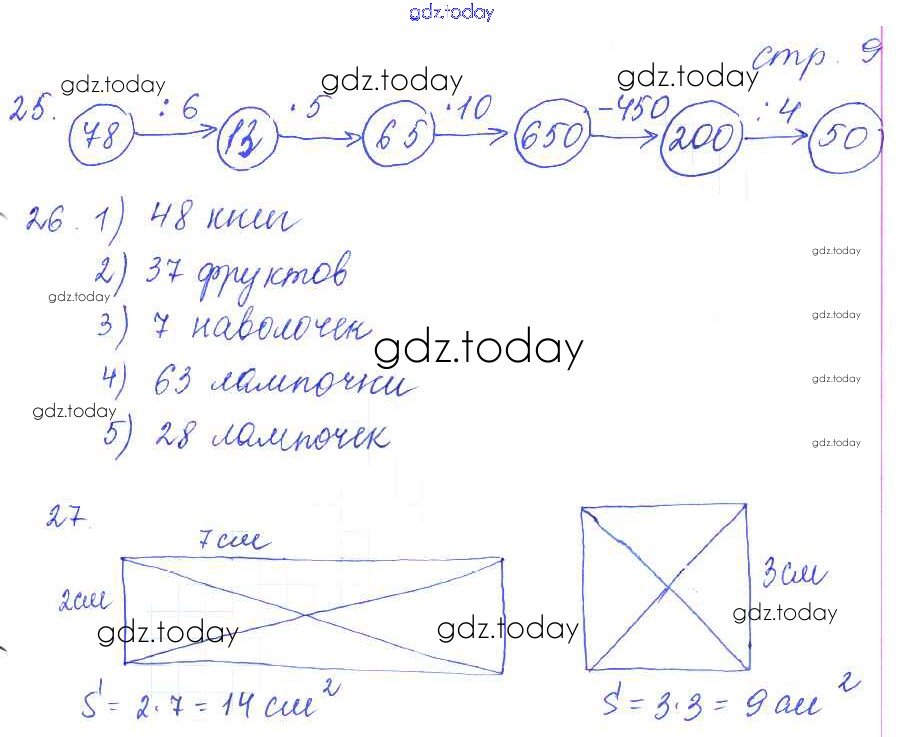 gdz.today
стр. 9
gdz.today gdz.today gdz.today
25. 78 :6 13 ·5 65 ·10 650 -450 200 :4 50
26. 1) 48 книг
gdz.today
2) 37 фруктов
gdz.today
gdz.today
3) 7 наволочек
gdz.today
4) 63 лампочки
gdz.today
gdz.today
5) 28 лампочек
gdz.today
27.
7 см
2 см
3 см
gdz.today gdz.today gdz.today
S = 2·7 = 14 см²
S = 3·3 = 9 см²